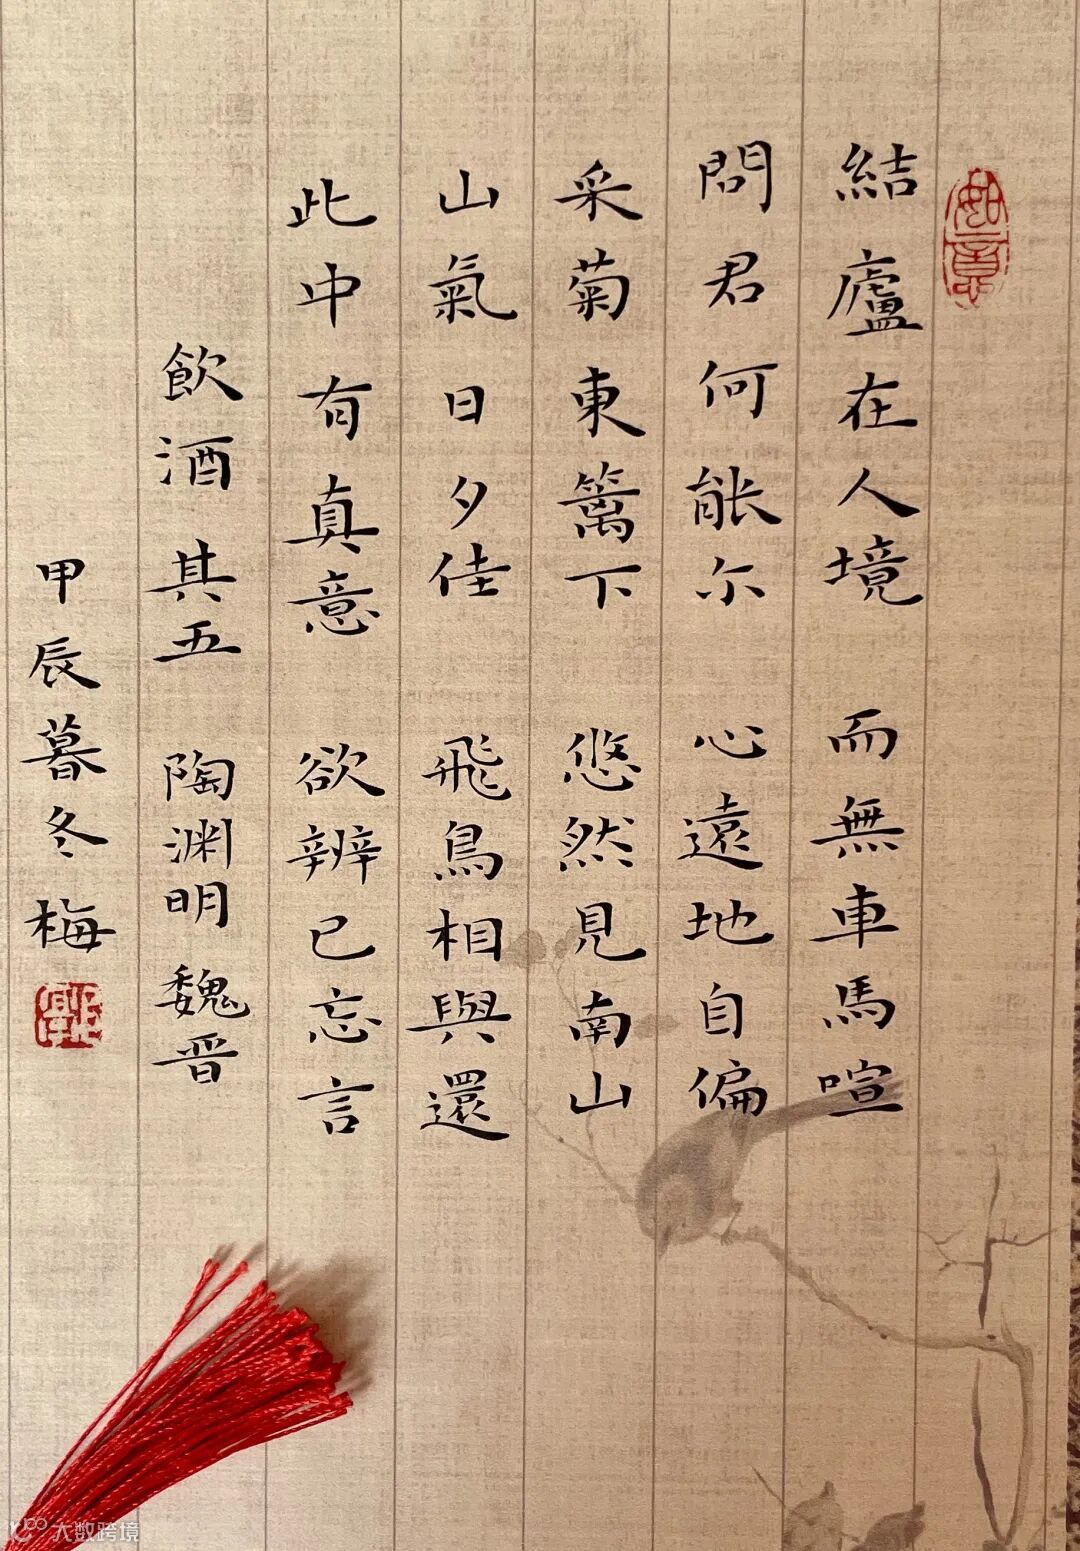 如意
結廬在人境 而無車馬喧
問君何能尔 心遠地自偏
采菊東篱下 悠然見南山
山氣日夕佳 飛鳥相與還
此中有真意 欲辨已忘言
飲酒其五 陶渊明 魏晋
甲辰暮冬梅
大数跨境